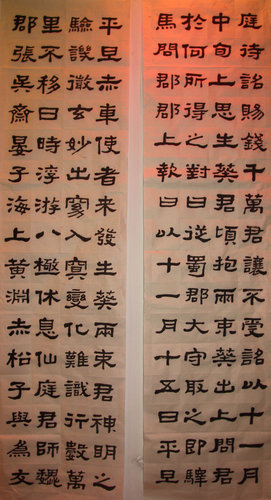 庭待詔賜錢千萬君讓不受詔以十一月
中旬上思生葵君頃抱兩束葵出上問君
於何所得之對曰從蜀郡大守取之即驛
馬問郡郡上報曰以十一月十五日平旦
平旦赤車使者來發生葵兩束君神明之
驗譏徹玄妙出窈入冥變化難識行數萬
里不移日時浮游八極休息仙庭君師魏
郡張吳齋晏子海上黃淵赤松子與為友